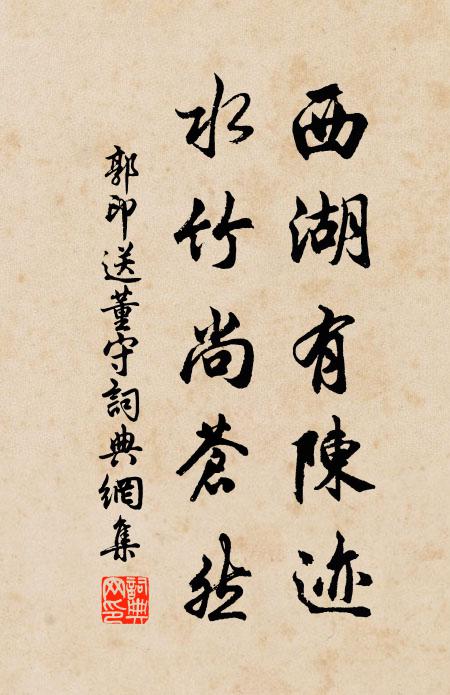 西湖有陳迹
水竹尚蒼然
郭印送董守詞典網集
詞典網印